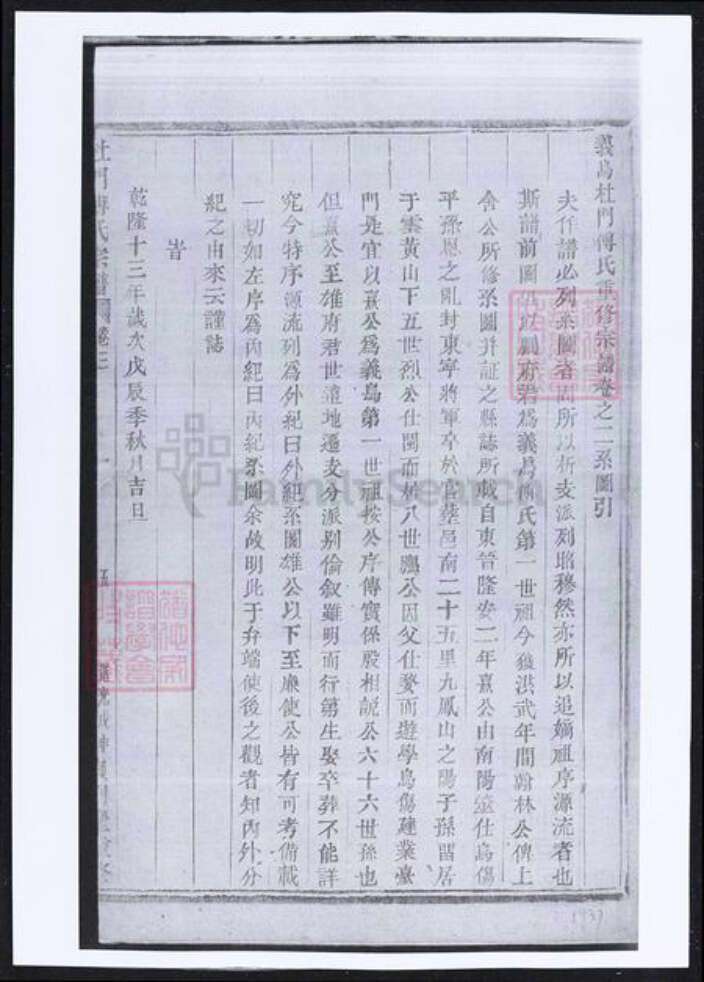 義烏杜門傅氏重修宗譜卷之二系圖引
夫作譜必列系圖者因所以析支派列昭穆然亦所以追嫡祖序源流者也
斯譜前圖 以鵬府君為義烏傅氏第一世祖今獲洪武年間翰林公俾上
舍公所修系圖幷証之縣誌所載自東晉隆安二年熹公由南陽筮仕烏傷
平孫恩之亂封東寧將軍卒於官塟邑南二十五里九鳳山之陽子孫畱居
于雲黃山下五世烈公仕閩而於八世鵬公因父仕婺而遊學烏傷建業臺
門是宜以熹公爲義烏第一世祖按公序傳實係殷相說公六十六世孫也
但熹公至雄府君世遠地遙支分派别倫叙雖明而行第生娶卒葬不能詳
究今特序源流列爲外紀曰外紀系圖雄公以下至廉使公皆有可考備載
一切如左序爲內紀曰內紀系圖余故明此于弁端使後之觀者知內外分
紀之由來云謹誌
旹
乾隆十三年歲次戊辰季秋月吉旦
杜門傅氏宗譜 卷二
一
FamilySearch
1937